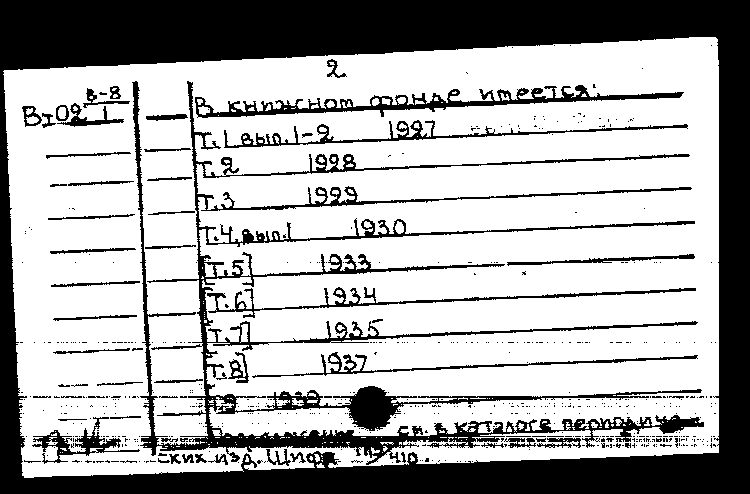 2
В-8
ВI02 1
В книжном фонде имеется:
Т.1 вып.1-2 1927
Т.2 1928
Т.3 1929
Т.4, вып.1 1930
[Т.5] 1933
[Т.6] 1934
[Т.7] 1935
[Т.8] 1937
Т.9 1939
Продолжение см. в каталоге периодиче-
ских изд. Шифр 410.